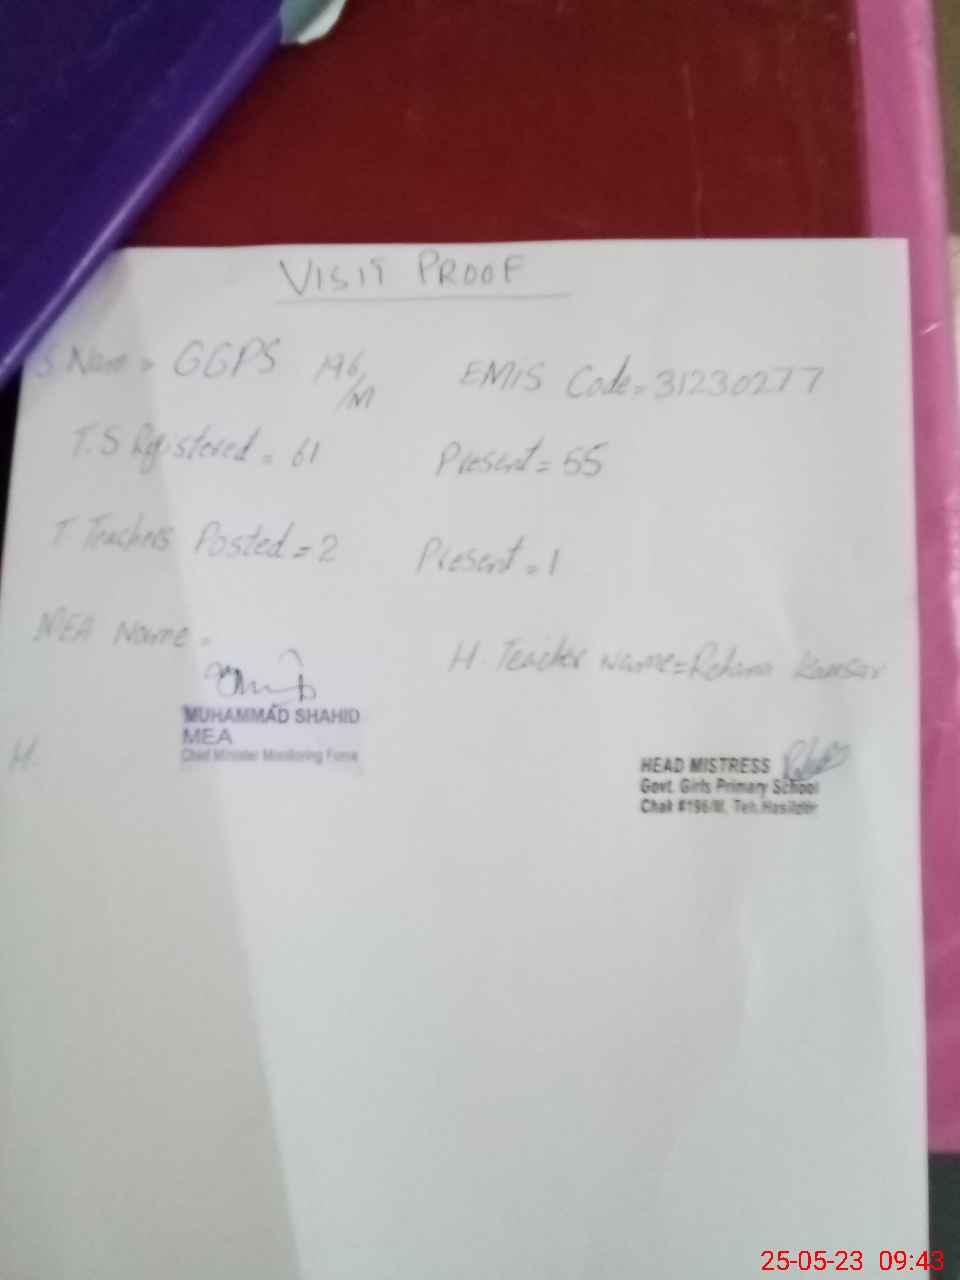 VISIT PROOF
S. Name = GGPS 196/M EMIS Code = 31230277
T.S Registered = 61 Present = 55
T. Teachers Posted = 2 Present = 1
MEA Name =
H. Teacher name = Rehana Kausar
MUHAMMAD SHAHID
MEA
Chief Minister Monitoring Force
H.
HEAD MISTRESS
Govt. Girls Primary School
Chak #196/M, Teh.Hasilpur
25-05-23 09:43